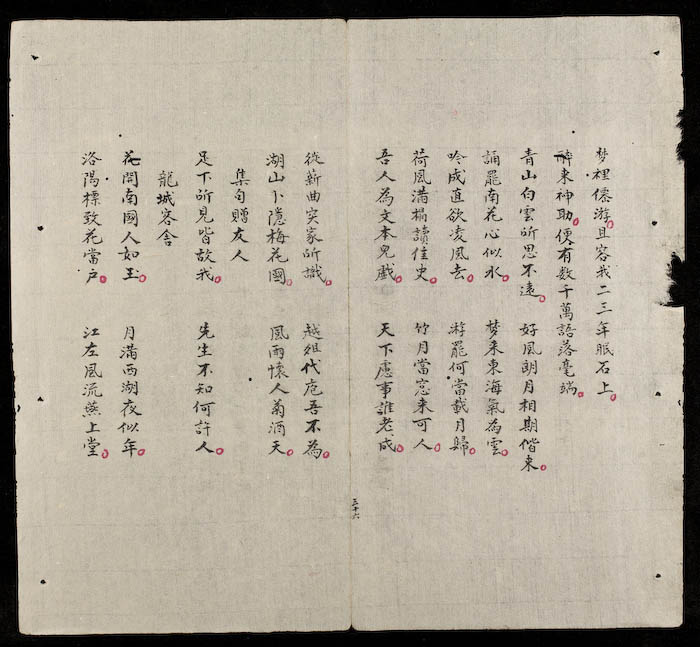 梦裡僊游。且容我二三年眠石上。
神来神助。便有数千萬語落毫端。
青山白雲所思不遠。 好風朗月相期偕来。
誦罷南花心似水。 梦来東海氣為雲。
吟成直欲凌風去。 游罷何當載月歸。
荷風满榻讀佳史。 竹月當窓来可人。
吾人為文本兒戯。 天下慮事誰老成。
三十六
從薪曲突家所。 越俎代庖吾不為。
湖山卜隱梅花國。 風雨懷人菊酒天。
集句贈友人
足下所見皆故我。 先生不知何許人。
龍城客舍
花開南國人如玉。 月满西湖夜似年。
洛陽標致花當户。 江左風流燕上堂。